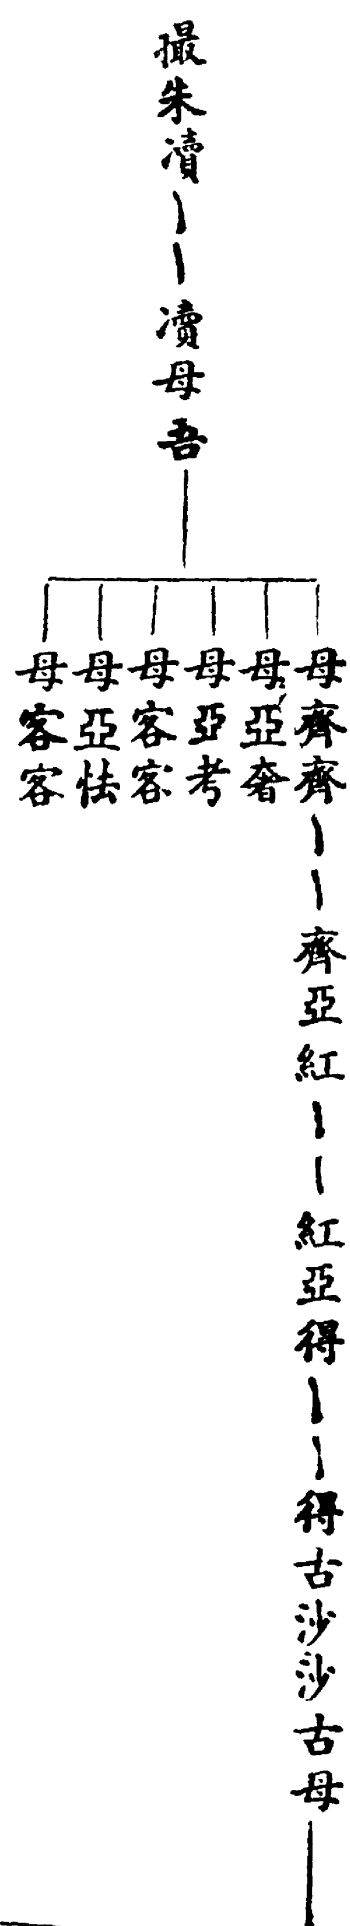 撮朱凟——凟母吾
母齊齊——齊亞紅——紅亞得——得古沙沙古母
母亞奢
母亞考
母客客
母亞怯
母客客